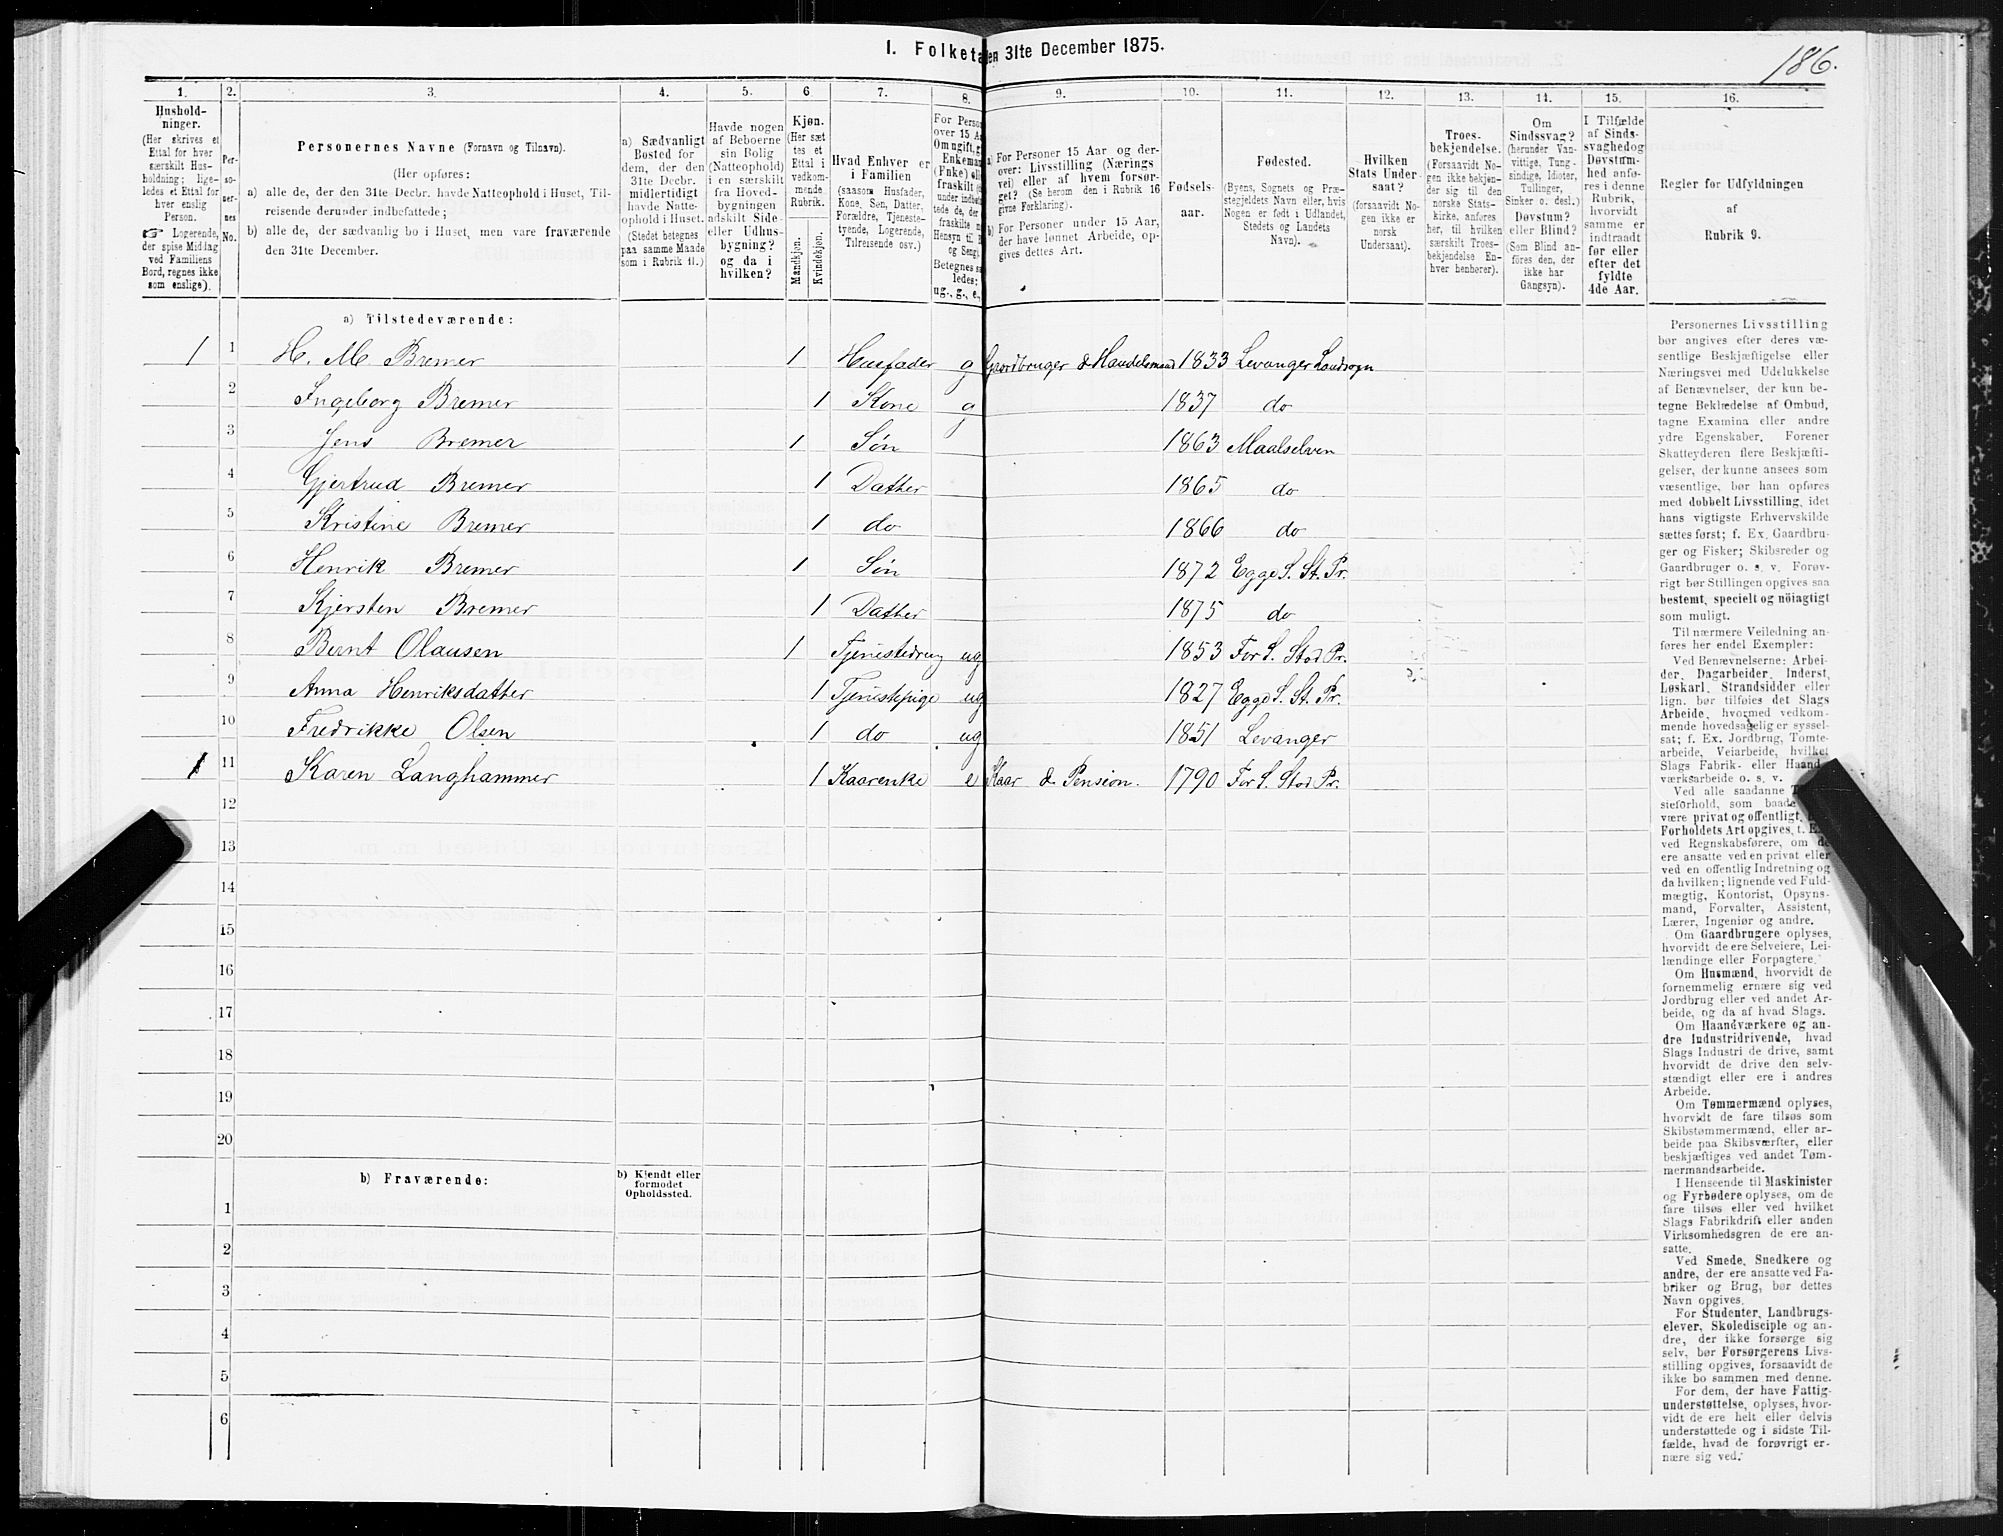 I. Folketa en 31te December 1875.
186.
1. 2. 3. 4. 5. 6. 7. 8. 9. 10. 11. 12. 13. 14. 15. 16.
Hushold-
ninger.
(Her skrives et
Ettal for hver
særskilt Hus-
holdning; lige-
ledes et Ettal for
hver enslig
Person.
☞ Logerende,
der spise Middag
ved Familiens
Bord, regnes ikke
som enslige).
Per-
so-
ner-
nes
No.
Personernes Navne (Fornavn og Tilnavn).
(Her opføres:
a) alle de, der den 31te Decbr. havde Natteophold i Huset, Til-
reisende derunder indbefattede;
b) alle de, der sædvanlig bo i Huset, men vare fraværende
den 31te December.
a) Sædvanligt
Bosted for
dem, der den
31te Decbr.
midlertidigt
havde Natte-
ophold i Huset.
(Stedet betegnes
paa samme Maade
som i Rubrik 11.)
Havde nogen
af Beboerne
sin Bolig
(Natteophold)
i en særskilt
fra Hoved-
bygningen
adskilt Side-
eller Udhus-
bygning?
og da i
hvilken?
Kjøn.
(Her sæt
tes et
Ettal i
vedkom-
mende
Rubrik.
Mandkjøn.
Kvindekjøn.
Hvad Enhver er
i Familien
(saasom Husfader,
Kone, Søn, Datter,
Forældre, Tjeneste-
tyende, Logerende,
Tilreisende osv.)
For Person
over 15 A
Om ugift, g
Enkeman
(Enke) ell
fraskilt
under indbe
tede de, der
fraskilte m
Hensyn til B
og Seng).
Betegnes sa
ledes:
ug., g., e.,
a) For Personer 15 Aar og der-
over: Livsstilling (Nærings
vei) eller af hvem forsør-
get? (Se herom den i Rubrik 16
givne Forklaring).
b) For Personer under 15 Aar,
der have lønnet Arbeide, op-
gives dettes Art.
Fødsels-
aar.
Fødested.
(Byens, Sognets og Præ-
stegjeldets Navn eller, hvis
Nogen er født i Udlandet,
Stedets og Landets
Navn).
Hvilken
Stats Under-
saat?
(forsaavidt No-
gen ikke er
norsk
Undersaat).
Troes-
bekjendelse.
(Forsaavidt No-
gen ikke bekjen-
der sig til den
norske Stats-
kirke, anføres
her, til hvilken
særskilt Troes-
bekjendelse En-
hver henhører).
Om
Sindssvag?
(herunder Van-
vittige, Tung-
sindige, Idioter,
Tullinger,
Sinker o. desl.)
Døvstum?
eller Blind?
(Som Blind an-
føres den, der
ikke har
Gangsyn).
I Tilfælde
af Sinds-
svaghed og
Døvstum-
hed anfø-
res i denne
Rubrik,
hvorvidt
samme er
indtraadt
før eller
efter det
fyldte
4de Aar.
Regler for Udfyldningen
af
Rubrik 9.
a) Tilstedeværende:
1 1 H. M Bremer 1 Husfader g Gaardbruger & Handelsmand 1833 Levanger Landsogn
2 Ingeborg Bremer 1 Kone g 1837 do
3 Jens Bremer 1 Søn 1863 Maalselven
4 Gjertrud Bremer 1 Datter 1865 do
5 Kristine Bremer 1 do 1866 do
6 Henrik Bremer 1 Søn 1872 Egge S. St. Pr.
7 Kjersten Bremer 1 Datter 1875 do
8 Bernt Olausen 1 Tjenestedreng ug 1853 For S. Stod Pr.
9 Anna Henriksdatter 1 Tjenestepige ug 1827 Egge S. St. Pr.
10 Fredrikke Olsen 1 do ug 1851 Levanger
1 11 Karen Langhammer 1 Kaarenke e Kaar & Pension. 1790 For S. Stod Pr.
12
13
14
15
16
17
18
19
20
b) Fraværende:
b) Kjendt eller
formodet
Opholdssted.
1
2
3
4
5
6
Personernes Livsstilling
bør angives efter deres væ-
sentlige Beskjæftigelse eller
Næringsvei med Udelukkelse
af Benævnelser, der kun be-
tegne Beklædelse af Ombud,
tagne Examina eller andre
ydre Egenskaber. Forener
Skatteyderen flere Beskjæfti-
gelser, der kunne ansees som
væsentlige, bør han opføres
med dobbelt Livsstilling, idet
hans vigtigste Erhvervskilde
sættes først; f. Ex. Gaardbru-
ger og Fisker; Skibsreder og
Gaardbruger o. s. v. Forøv-
rigt bør Stillingen opgives saa
bestemt, specielt og nöiagtigt
som muligt.
Til nærmere Veiledning an-
føres her endel Exempler:
Ved Benævnelserne: Arbei-
der, Dagarbeider, Inderst,
Løskarl, Strandsidder eller
lign. bør tilføies det Slags
Arbeide, hvormed vedkom-
mende hovedsagelig er syssel-
sat; f. Ex. Jordbrug, Tømte-
arbeide, Veiarbeide, hvilket
Slags Fabrik- eller Haand-
værksarbeide o. s. v.
Ved alle saadanne
sieforhold, som baade
være privat og offentligt,
Forholdets Art opgives, t. Ex
ved Regnskabsførere, om de
ere ansatte ved en privat eller
ved en offentlig Indretning og
da hvilken; lignende ved Fuld-
mægtig, Kontorist, Opsyns-
mand, Forvalter, Assistent,
Lærer, Ingeniør og andre.
Om Gaardbrugere oplyses,
hvorvidt de ere Selveiere, Lei-
lændinge eller Forpagtere.
Om Husmænd, hvorvidt de
fornemmelig ernære sig ved
Jordbrug eller ved andet Ar-
beide, og da af hvad Slags.
Om Haandværkere og an-
dre Industridrivende, hvad
Slags Industri de drive, samt
hvorvidt de drive den selv-
stændigt eller ere i andres
Arbeide.
Om Tømmermænd oplyses,
hvorvidt de fare tilsøs som
Skibstømmermænd, eller ar-
beide paa Skibsværfter, eller
beskjæftiges ved andet Tøm-
mermandsarbeide.
I Henseende til Maskinister
og Fyrbødere oplyses, om de
fare tilsøs eller ved hvilket
Slags Fabrikdrift eller anden
Virksomhedsgren de ere an-
satte.
Ved Smede, Snedkere og
andre, der ere ansatte ved Fa-
briker og Brug, bør dettes
Navn opgives.
For Studenter, Landbrugs-
elever, Skoledisciple og an-
dre, der ikke forsørge sig
selv, bør Forsørgerens Livs-
stilling opgives, forsaavidt de
ikke bo sammen med denne.
For dem, der have Fattig-
understøttelse, oplyses, hvor-
vidt de ere helt eller delvis
understøttede og i sidste Til-
fælde, hvad de forøvrigt er-
nære sig ved.